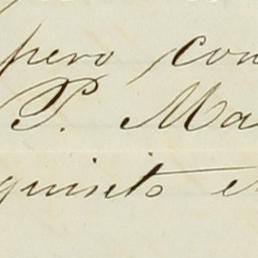 pero con
P. Ma
quisito e